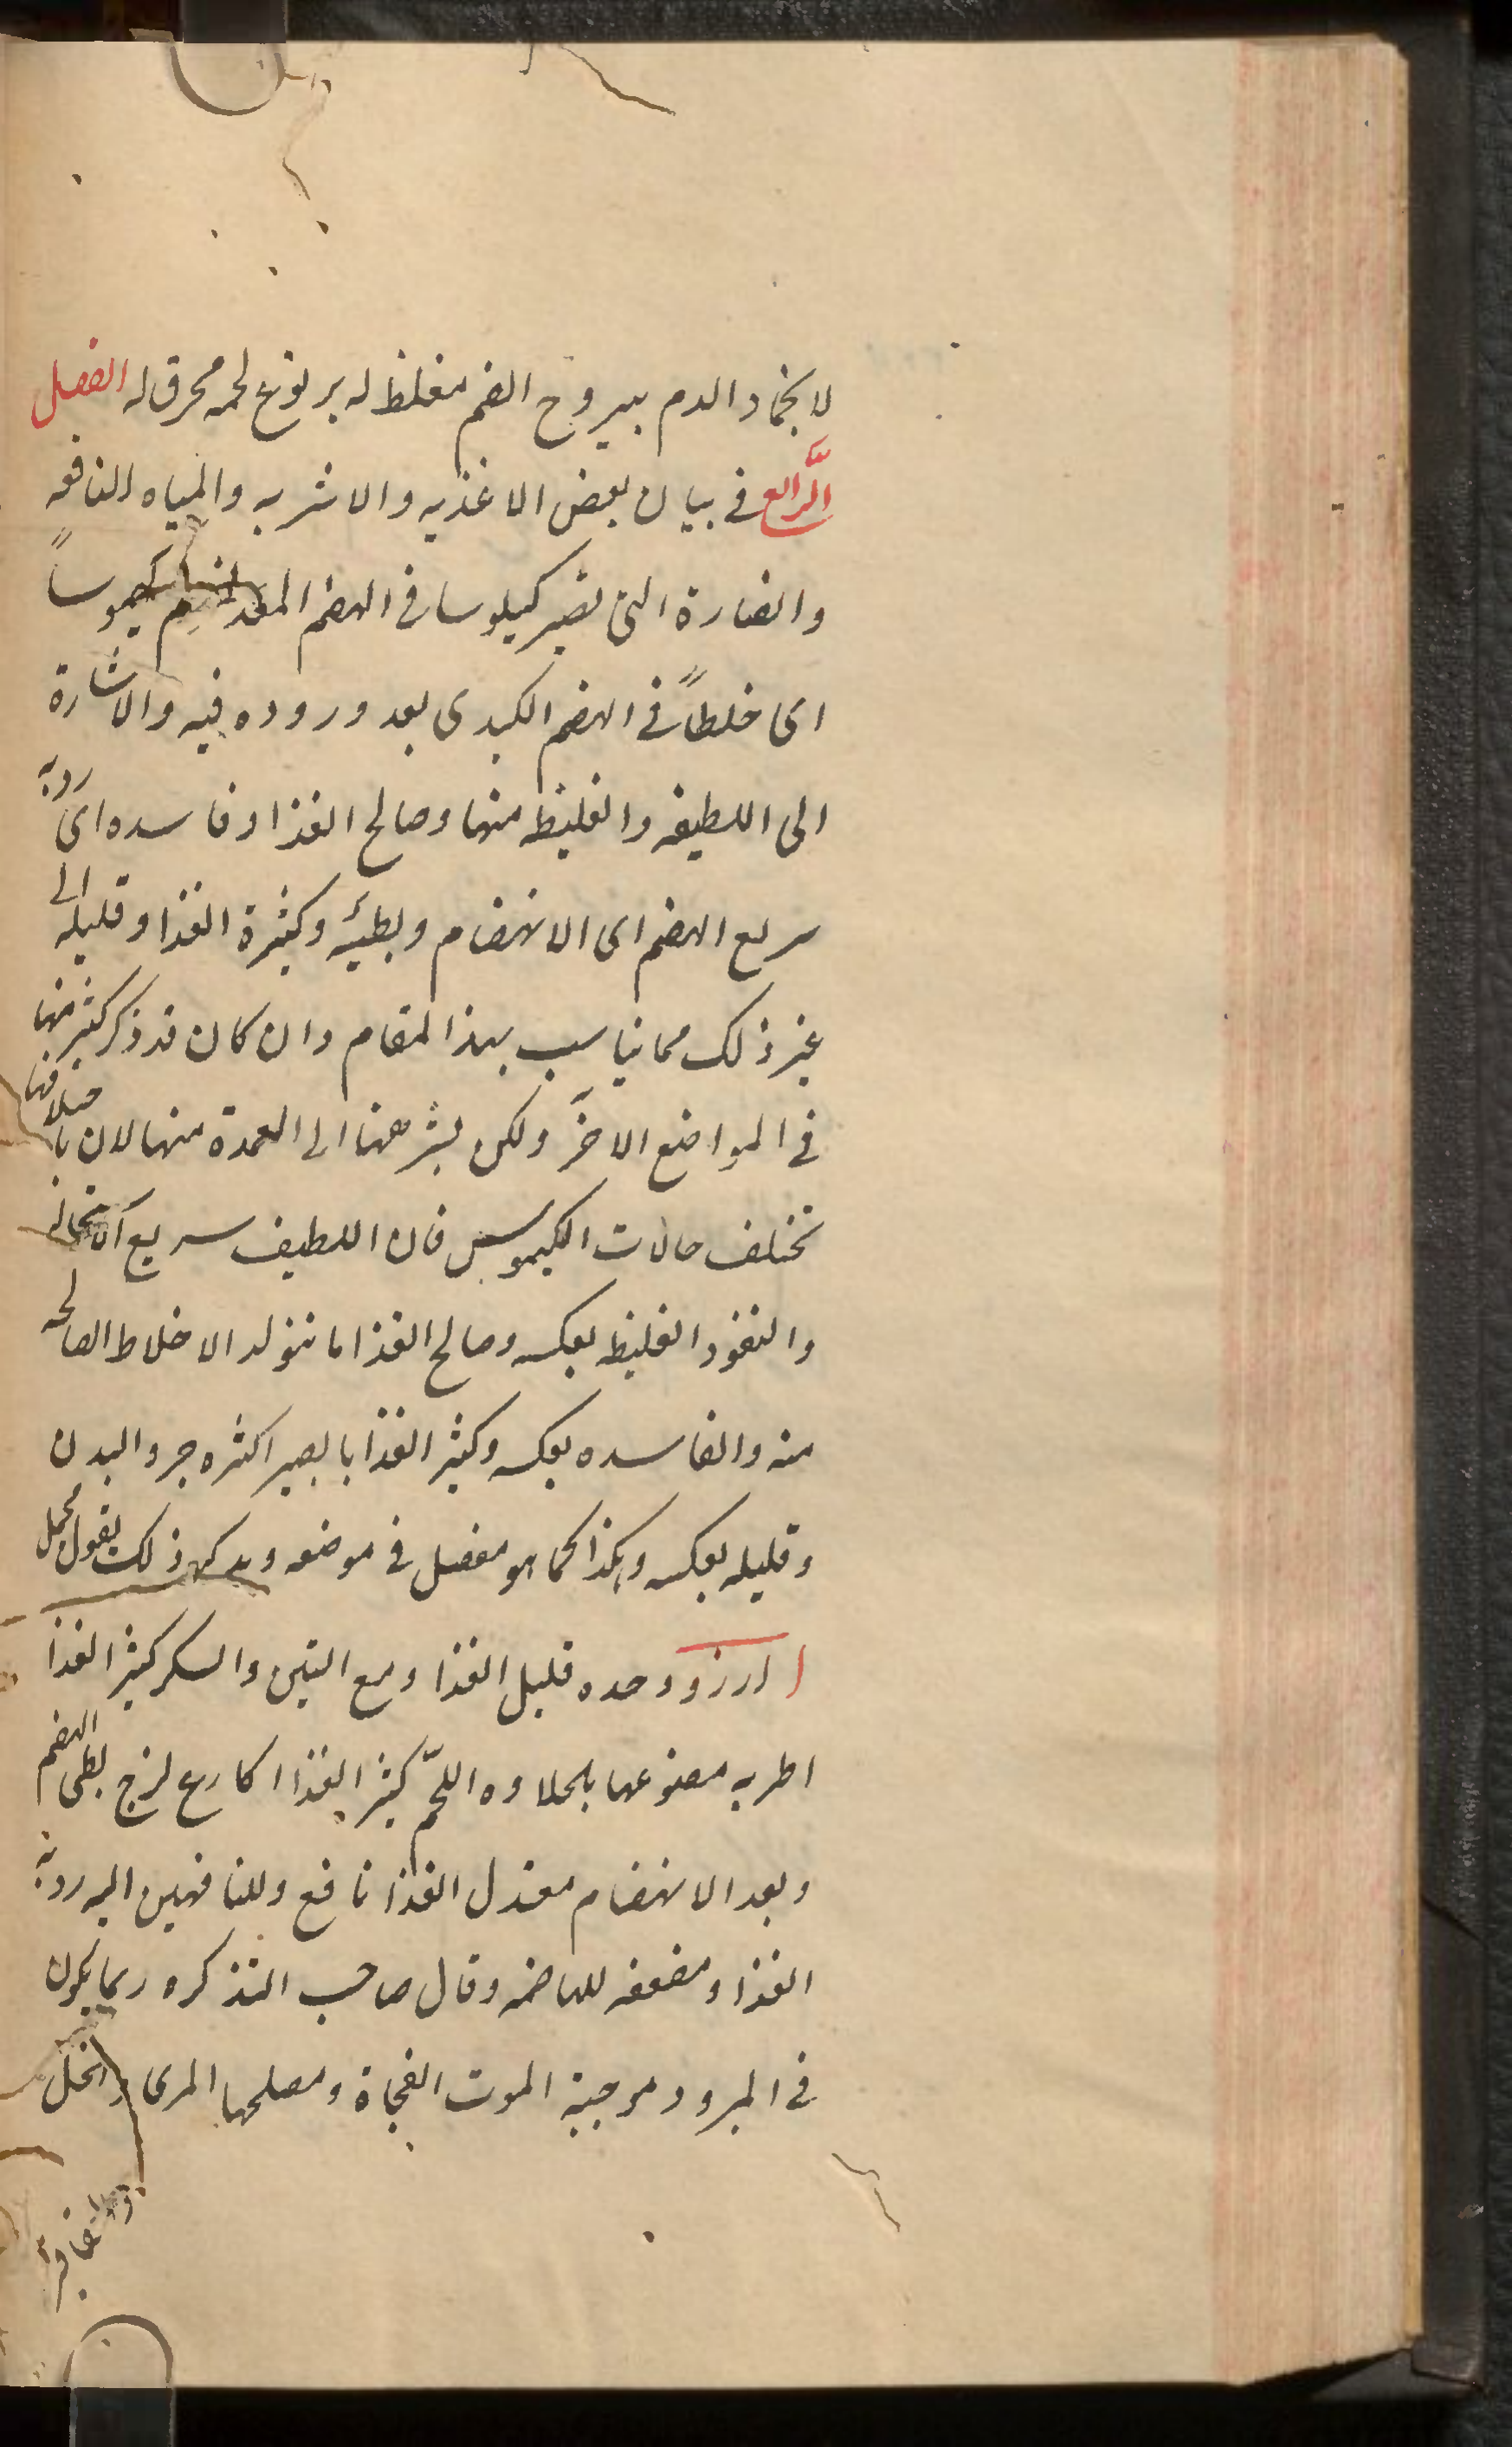 لانجماد الدم يبروح الفم مغلظ له بر نوع لحمه محرق له الفصل
الرّابع في بيان بعض الاغذيه والاشربه والمياه النافعه
والضارة التي تصير كيلوسا في الهضم المعدى كيموساً
اى خلطاً في الهضم الكبدى بعد وروده فيه والاشارة
الى اللطيفه والغليظه منها وصالح الغذا وفاسده اى رديه
سريع الهضم اى الانهضام وبطيئه وكثيرة الغذا وقليله الى
غير ذلك مما يناسب بهذا المقام وان كان قد ذكر كثير منها
في المواضع الاخَر ولكن يشر ههنا الى العمدة منها لان باختلافها
تختلف حالات الكيموس فان اللطيف سريع الاستحاله
والنفوذ الغليظ بعكسه وصالح الغذا ما تتولد الاخلاط الصالحه
منه والفاسده بعكسه وكثير الغذا ما يصير اكثره جزو البدن
وقليله بعكسه وهكذا كما هو مفصل في موضعه ذلك بقول مجمل
ا ارز وحده قليل الغذا ومع التين والسكر كثير الغذا
اطريه مصنوعها بالحلاوه اللحم كثير الغذا اكارع لزج بطى الهضم
وبعد الانهضام معتدل الغذا نافع وللناقهين اليه رديه
الغذا ومضعفه للهاضمه وقال صاحب التذكره ربما يكون
في المبرود موجبة الموت الفجاة ومصلحها المرى والخل